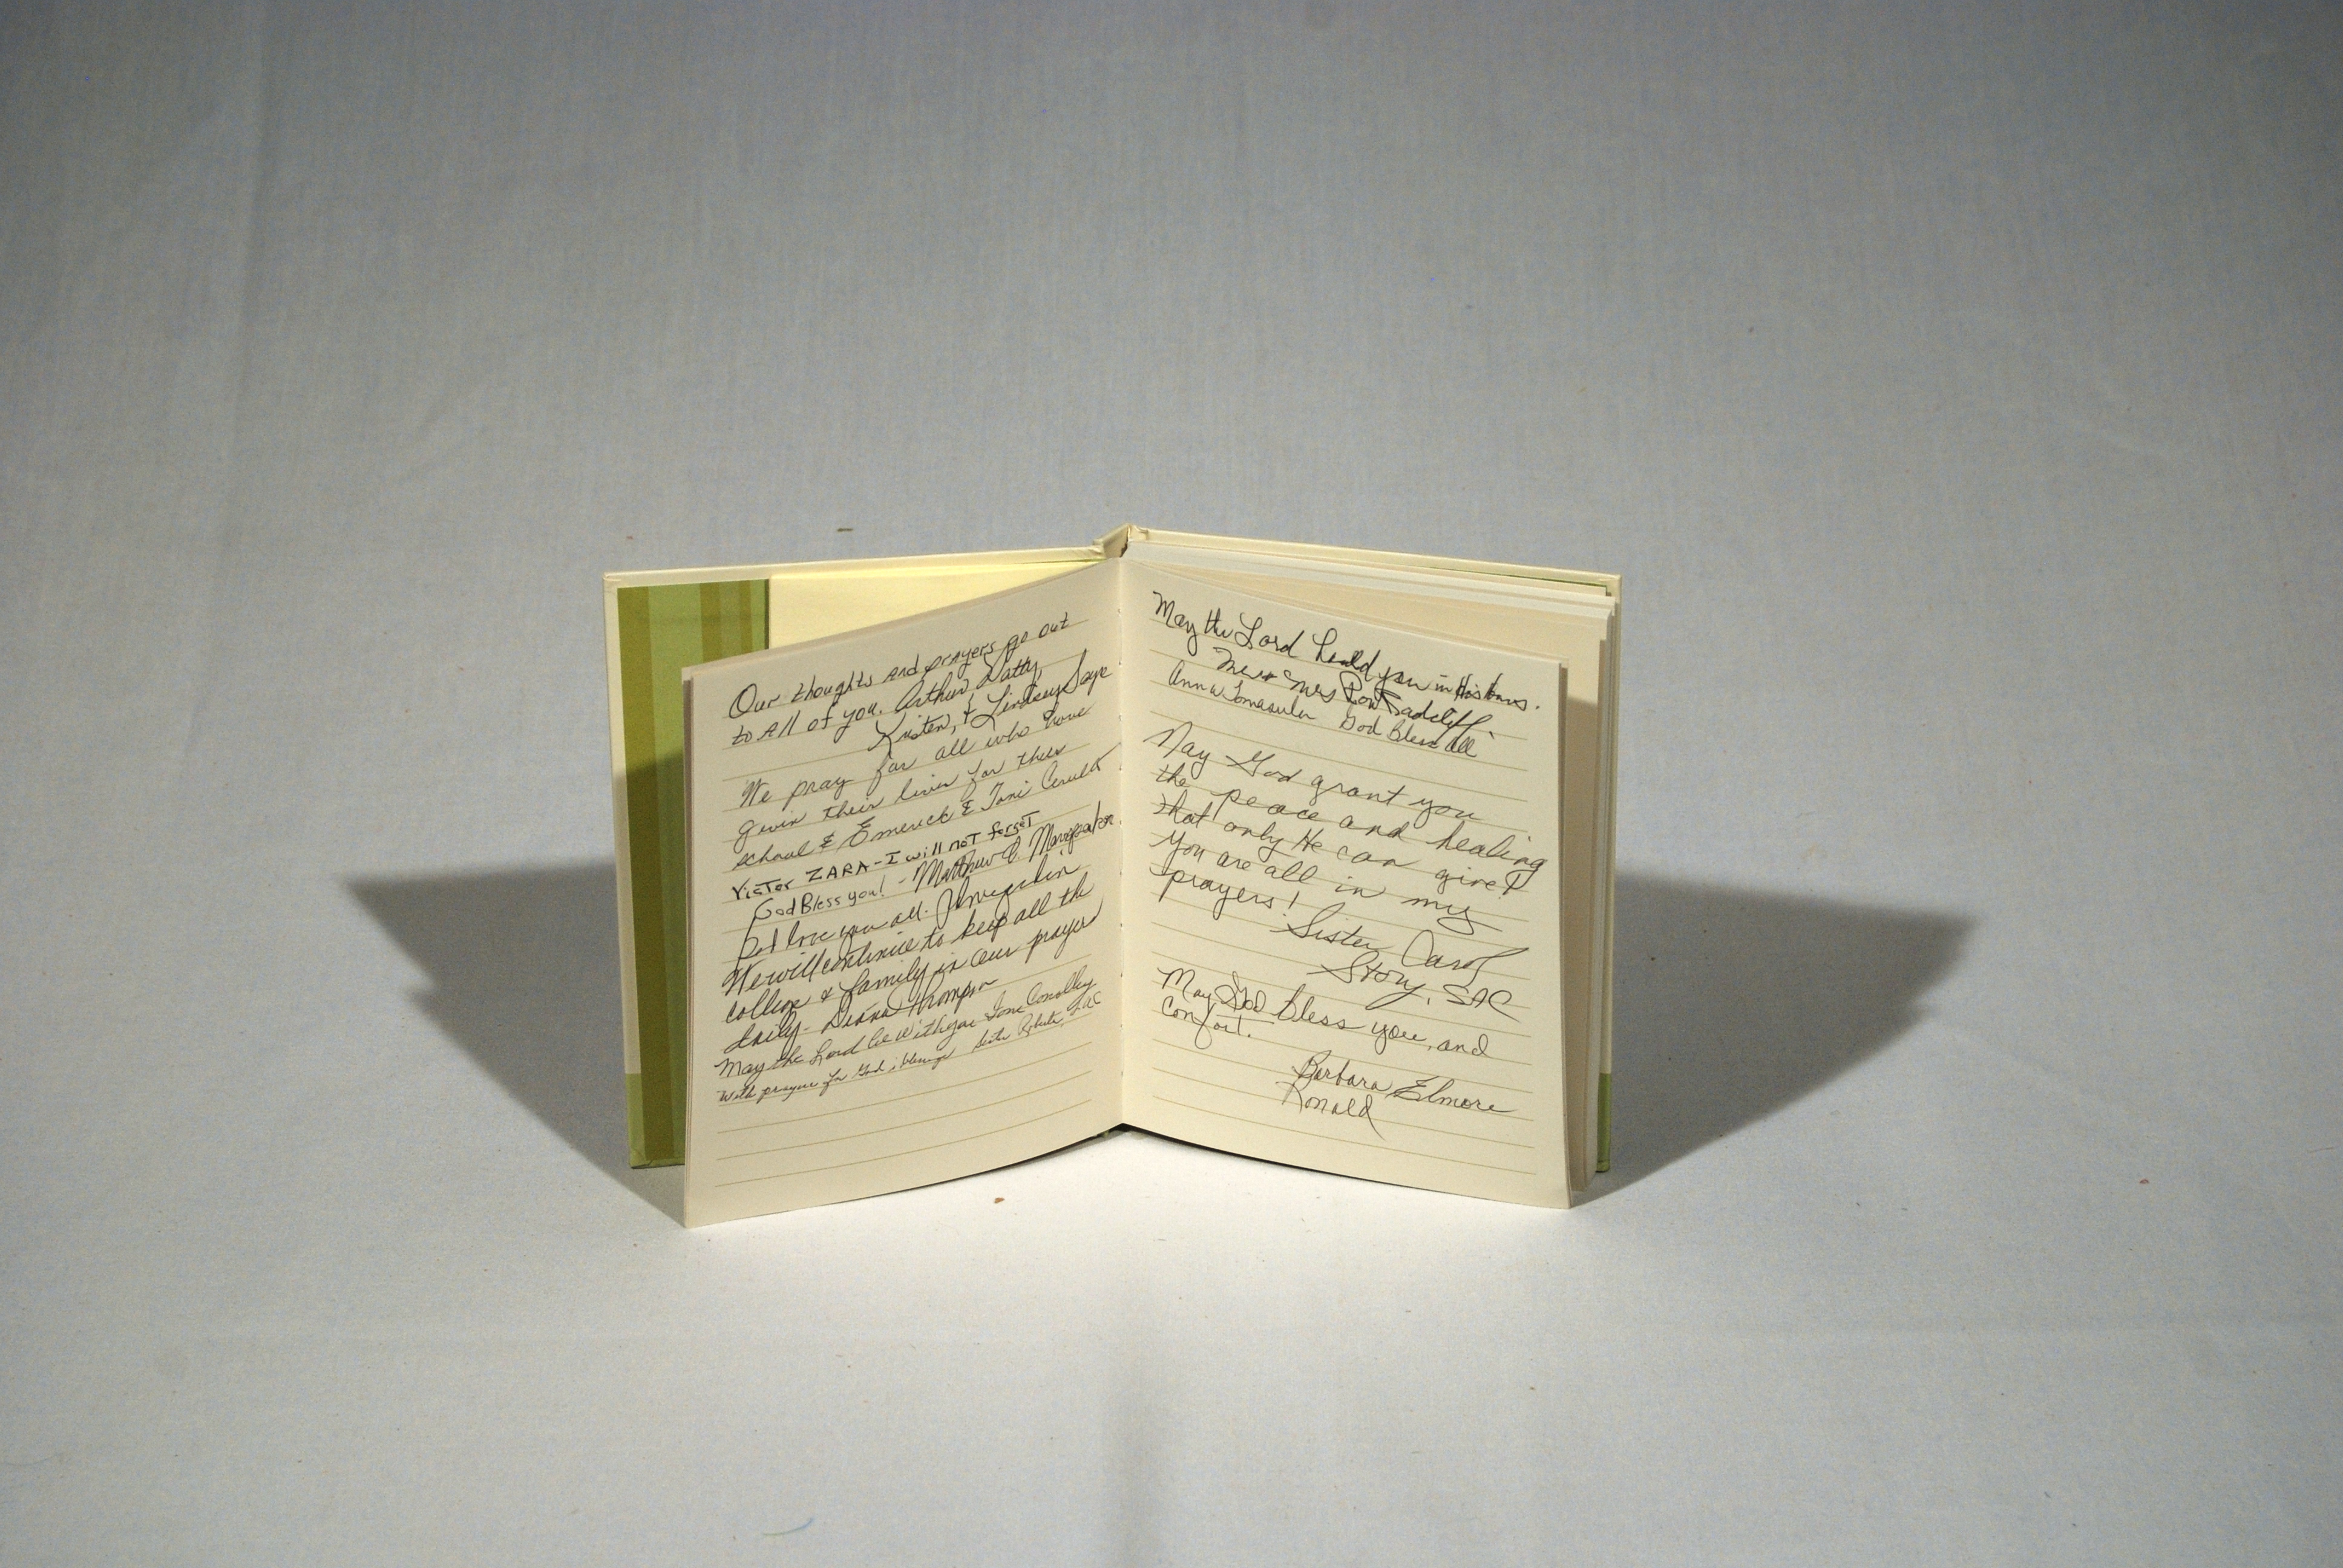 Our thoughts and prayers go out
to all of you. Arthur, Patty,
Kristen, & Lindsey Saye
We pray for all who have
given their lives for their
school & Emerick & Toni Cerulli
Victor ZARA - I will not forget
God Bless you! - Matthew
I love you all.
We will continue to keep all the
college & family in our prayers
daily - Diana Thompson
May the Lord be with you Jane Conolley
With prayer for God's blessings Sister Roberta, SAC
May the Lord hold you in His arms.
Mr & Mrs Ron Radcliff.
Anna Tomasulu God Bless all
May God grant you
the peace and healing
that only He can give!
You are all in my
prayers!
Sister Carol
Story, SAC
May God bless you, and
Comfort.
Barbara Elmore
Ronald